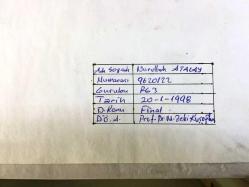 Adı Soyadı Nurullah ATALAY
Numarası 9620122
Gurubu PG3
Tarih 20-1-1998
D. Konu Final
D.Ö.A. Prof. Dr. M. Zeki